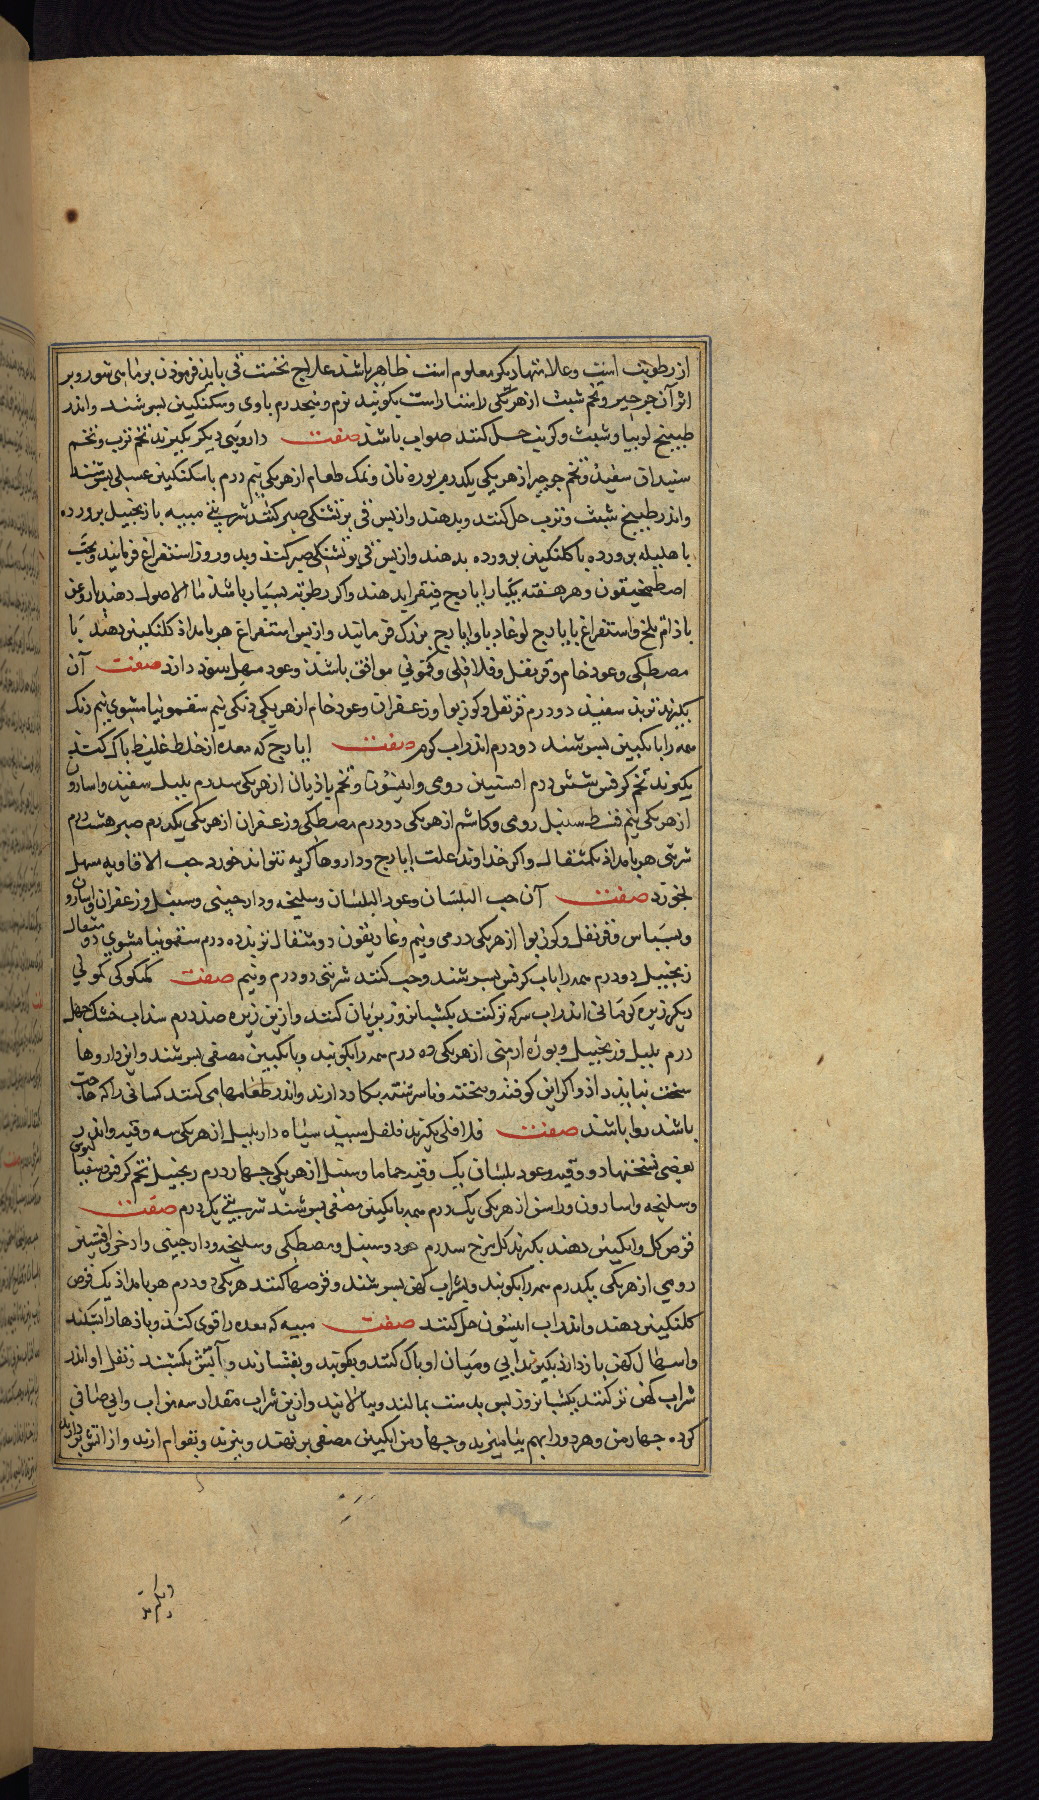 از رطوبت است وعلامتهاء دیکر معلوم است ظاهر باشد علاج نخست قی باید فرموذن بر ماهی شور و بر
اثر آن جرجیر وتخم شبت از هریکی راستاراست بکوبند نرم وپنجدرم با وی وسکنکبین بسرشند واندر
طبیخ لوبیا وشبث وکرنب حل کنند صواب باشد صفت داروی دیکر بکیرند تخم ترب وتخم
سپنداق سفید وتخم جرجیر از هریکی یکدرم بوره نان ونمک طعام از هریکی نیم درم با سکنکبین عسلی بسرشند
واندر طبیخ شبث وترب حل کنند وبدهند واز پس قی بر تشنکی صبر کنند شربتی میبه با زنجبیل پرورده
یا هلیله پرورده یا کلنکبین پرورده بدهند واز پس قی بر تشنکی صبر کنند وبدو روز استفراغ فرمایند وبحب
اصطمخیقون وهر هفته یکبار ایارج فیقرا بدهند واکر رطوبت بسیار باشد ما الاصول دهند با روغن
باذام تلخ واستفراغ بایارج لوغادیا وایارج بزرک فرمایند واز پس استفراغ هر بامداذ کلنکبین دهند با
مصطکی وعود خام وقرنفل وفلافلی وکمونی موافق باشد وعود مسهل سوذ دارد صفت آن
بکیرند تربد سفید دو درم قرنفل وکوزبوا وزعفران وعود خام از هریکی دنکی نیم سقمونیا مشوی نیم دنک
همه را بانکبین بسرشند دو درم اندر اب کرم صفت ایارج که معده از خلط غلیظ پاک کند
بکیرند تخم کرفس شش درم افسنتین رومی وانیسون وتخم باذیان از هریکی سدرم پلپل سفید واسارون
از هریکی نیم قسط سنبل رومی وکاشم از هریکی دو درم مصطکی وزعفران از هریکی یکدرم صبر هشت درم
شربتی هر بامداذ یکمثقال واکر خداوند علت ایارج وداروها کریه نتواند خورد حب الافاویه سهل
بخورد صفت آن حب البلسان وعود البلسان وسلیخه ودارچینی وسنبل وزعفران واسارون
وبسباس وقرنفل وکوزبوا از هریکی درمی ونیم وغاریقون دو مثقال تربد ده درم سقمونیا مشوی دو مثقال
زنجبیل دو درم همه را باب کرفس بسرشند وحب کنند شربتی دو درم ونیم صفت کمونی
دیکر زیره کرمانی اندر اب سرکه تر کنند یکشبانروز بریان کنند وازین زیره صد درم سذاب خشک چهل
درم پلپل وزنجبیل وبوره ارمنی از هریکی ده درم همه را بکوبند وبانکبین مصفی بسرشند واین داروها
سخت نباید داذ واکر این کوفته وبیخته وناسرشته بکار دارند واندر طعامها می کنند کسانی را که حاجت
باشد روا باشد صفت فلافلی بکیرند فلفل سپید سیاه دار پلپل از هریکی سه وقیه واندر
بعضی نسختها دو وقیه وعود بلسان یک وقیه حماما وسنبل از هریکی چهار درم زنجبیل تخم کرفس وسیسالیوس
وسلیخه واسارون وراسن از هریکی یک درم همه بانکبین مصفی بسرشند شربتی یک درم صفت
قرص کل وانکبین دهند بکیرند کل سرخ سدرم عود وسنبل ومصطکی وسلیخه ودارچینی واذخر وافسنتین
رومی از هریکی یکدرم همه را بکوبند وبشراب کهن بسرشند وقرصها کنند هریکی دو درم هر بامداذ یک قرص
کلنکبین دهند واندر اب انیسون حل کنند صفت میبه که معده را قوی کند وباذها را بشکند
واسهال کهن باز دارد بکیرند ابی ومیان او پاک کنند وبکوبند وبفشارند وآبش بکشند وثفل او اندر
شراب کهن تر کنند یکشبانروز پس بدست بمالند وبپالایند وازین شراب مقدار سه من واب ابی صافی
کرده چهار من وهر دو را بهم بیامیزند وچهار من انکبین مصفی بر نهند وبپزند وبقوام ارند واز اتش بردارند